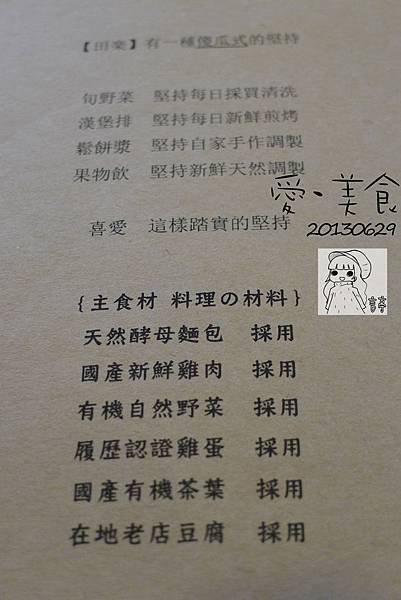 【田樂】有一種傻瓜式的堅持
旬野菜 堅持每日採買清洗
漢堡排 堅持每日新鮮煎烤
鬆餅漿 堅持自家手作調製
果物飲 堅持新鮮天然調製
喜愛 這樣踏實的堅持
愛、美食
20130629
{主食材 料理の材料}
天然酵母麵包 採用
國產新鮮雞肉 採用
有機自然野菜 採用
履歷認證雞蛋 採用
國產有機茶葉 採用
在地老店豆腐 採用